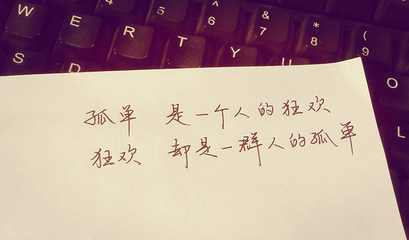 W E R T Y U
S D
5 6 & 7 * 8 ( 9
O
L
孤单 是一个人的狂欢
狂欢 却是一群人的孤单